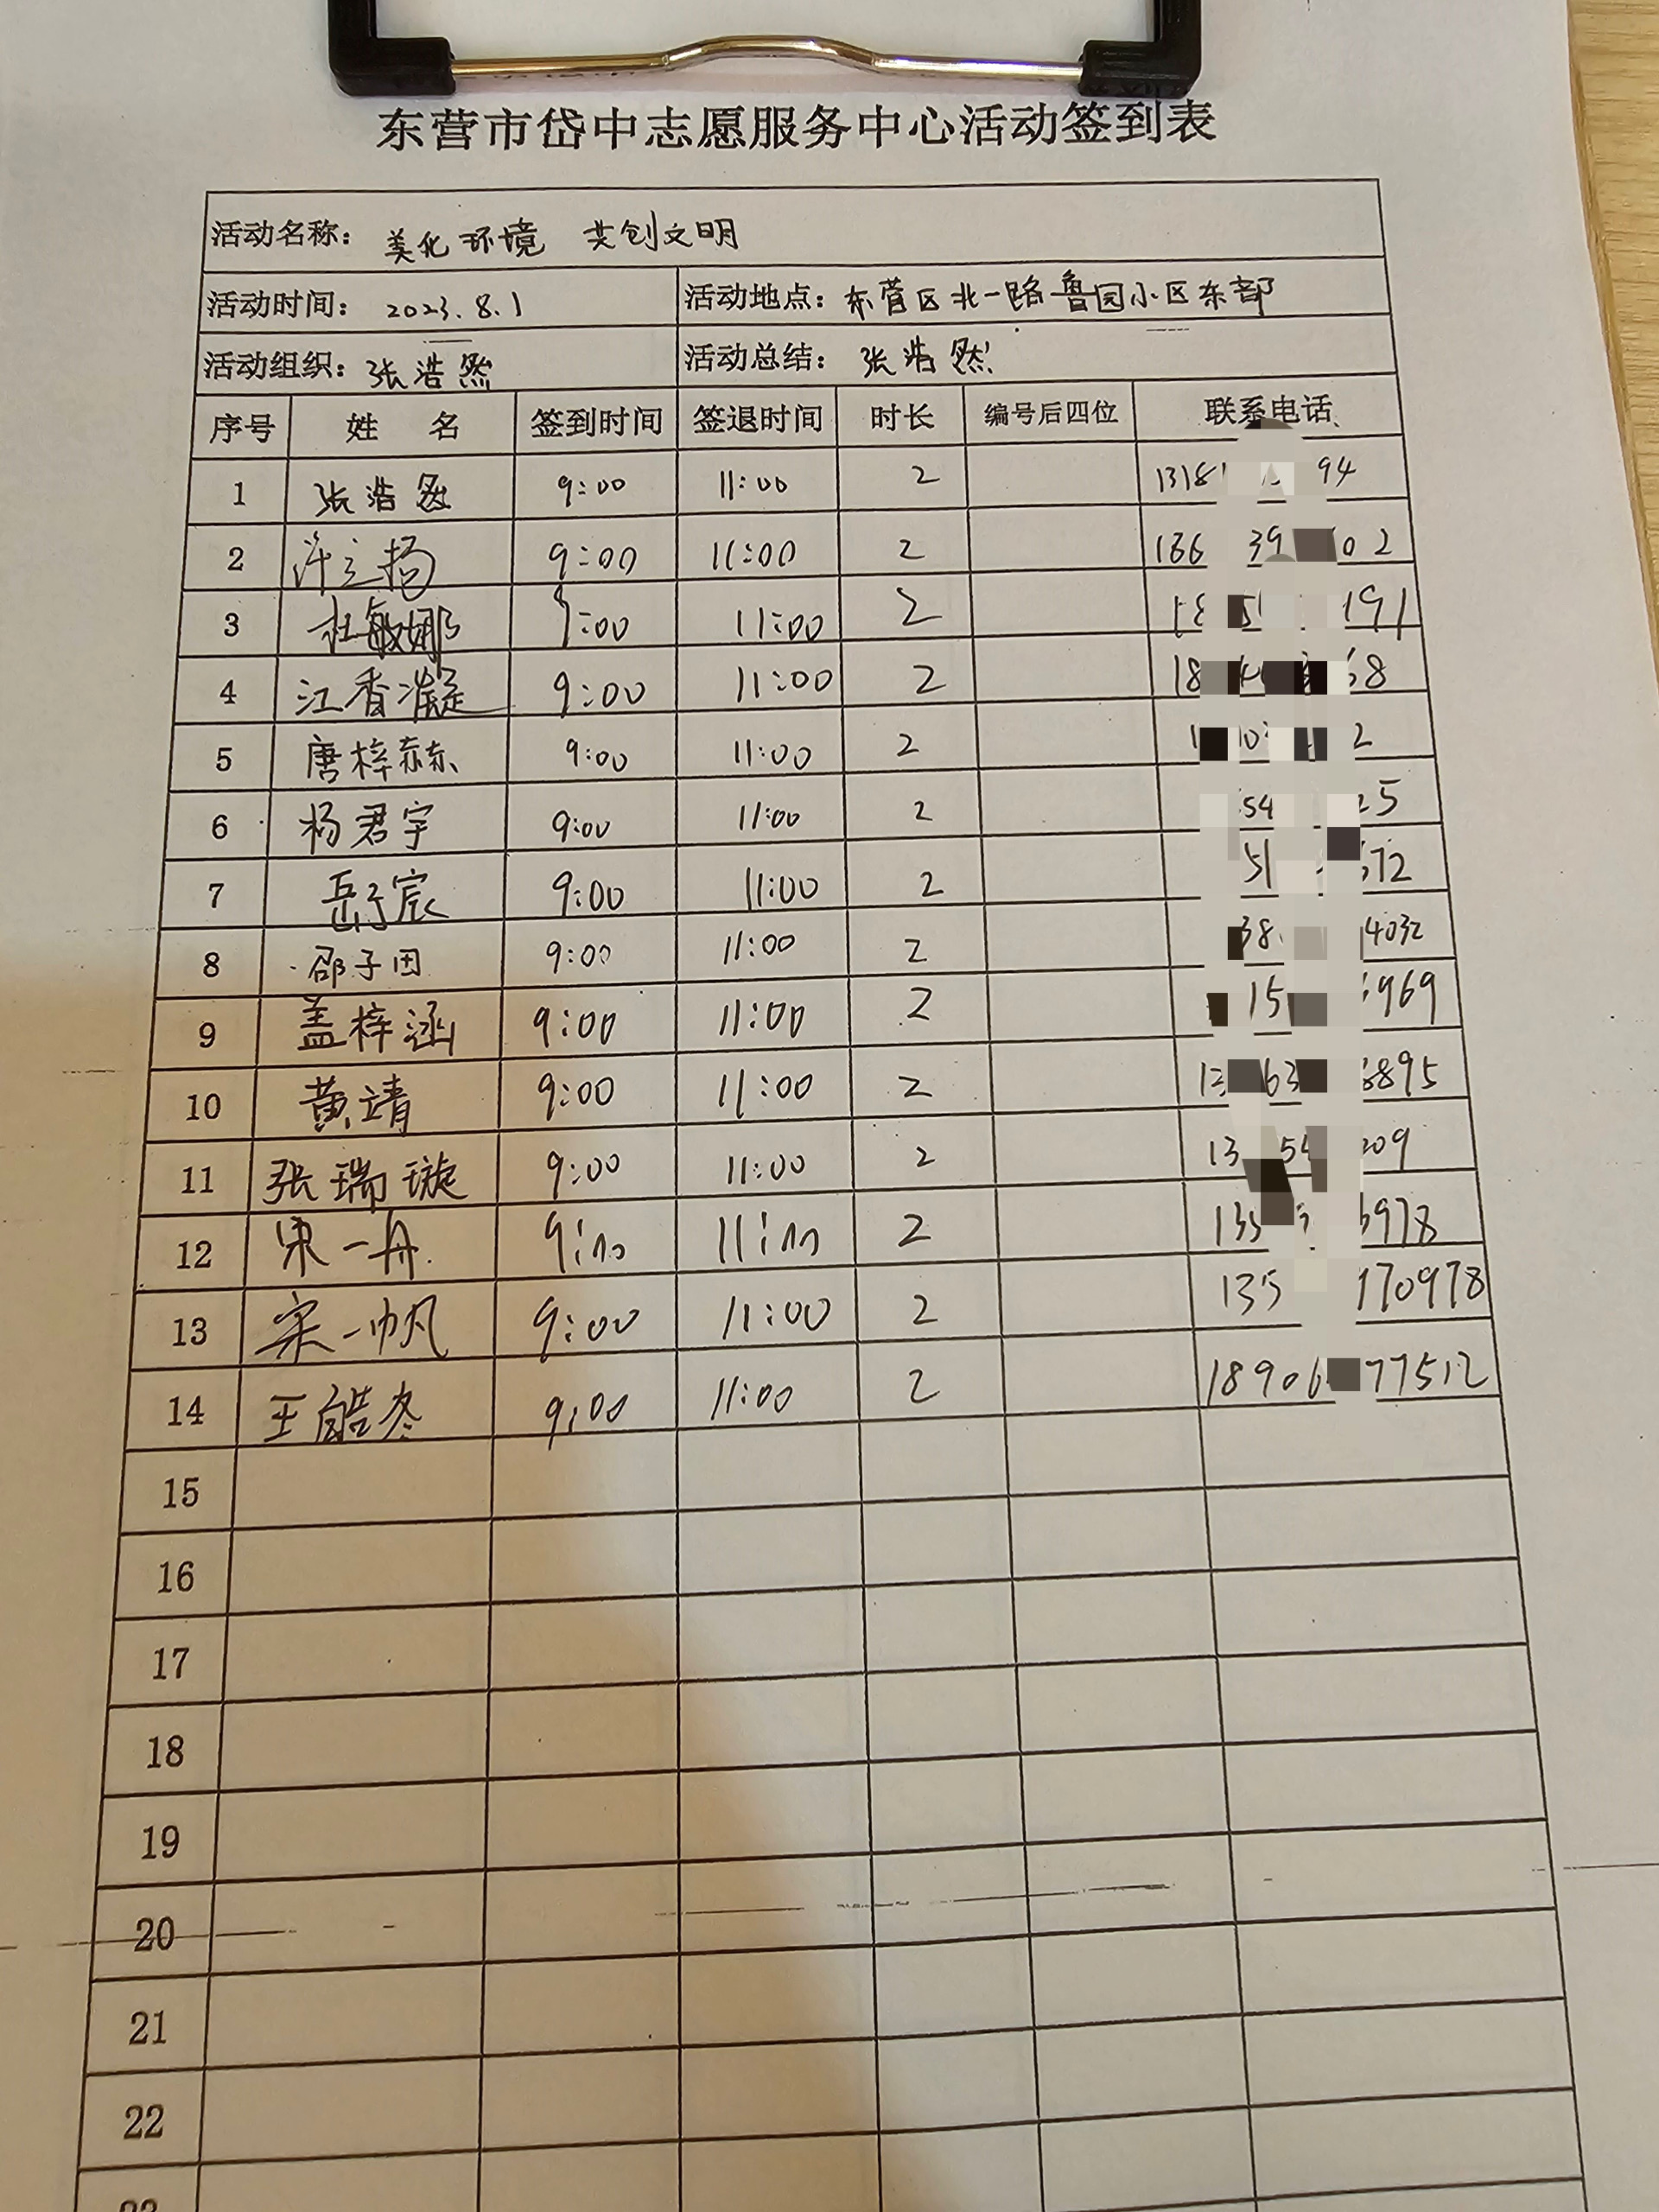 东营市岱中志愿服务中心活动签到表
活动名称： 美化环境 共创文明
活动时间： 2023.8.1 活动地点：东营区北一路鲁园小区东部
活动组织：张浩然 活动总结：张浩然
序号 姓 名 签到时间 签退时间 时长 编号后四位 联系电话
1 张浩然 9:00 11:00 2 1318 94
2 许立扬 9:00 11:00 2 136 39 02
3 杜敏娜 9:00 11:00 2 18 5 191
4 江香凝 9:00 11:00 2 18 68
5 唐梓赫 9:00 11:00 2 2
6 杨君宇 9:00 11:00 2 54 25
7 岳子宸 9:00 11:00 2 51 572
8 邵子田 9:00 11:00 2 38 4032
9 盖梓涵 9:00 11:00 2 15 969
10 黄靖 9:00 11:00 2 63 6895
11 张瑞璇 9:00 11:00 2 13 54 209
12 宋一丹 9:00 11:00 2 135 3978
13 宋一帆 9:00 11:00 2 135 170978
14 王皓冬 9:00 11:00 2 18906 77512
15
16
17
18
19
20
21
22